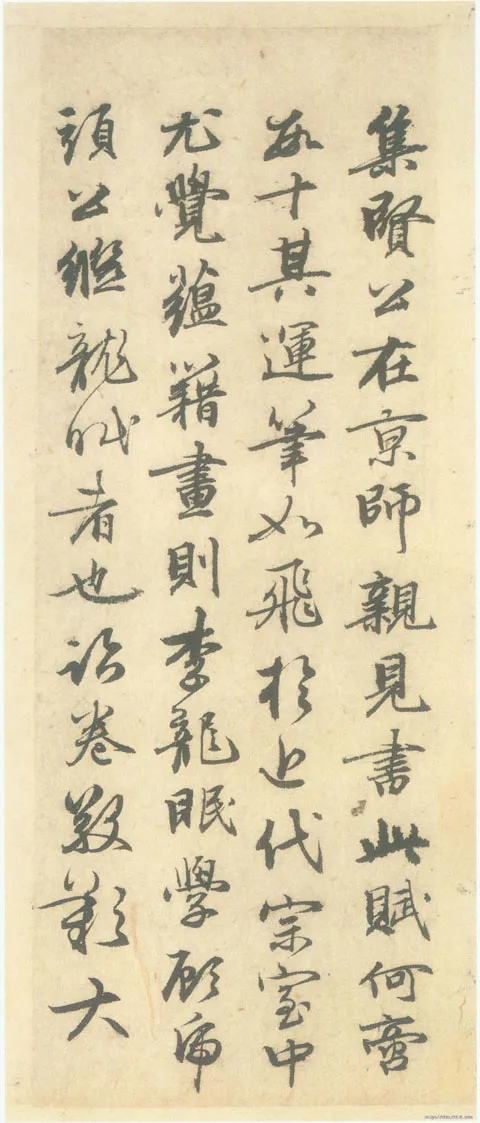 集賢公在京師親見書此賦何啻
數十其運筆如飛於近代宗室中
尤覺蘊籍畫則李龍眠學顧虎
頭公繼龍眠者也卷歎大